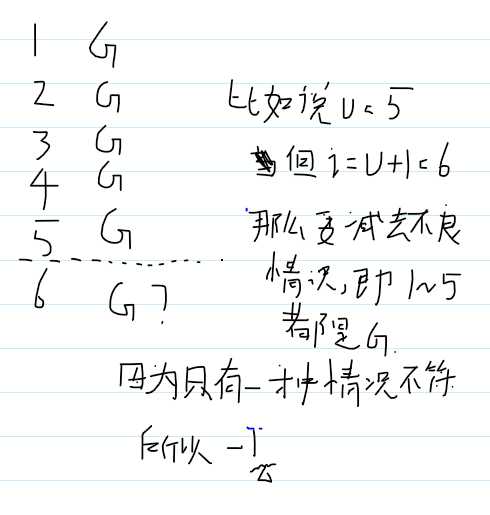 1 G
2 G
3 G
4 G
5 G
6 G?
比如说 U=5
但 i=U+1=6
那么要减去不良
情况,即 1~5
都是G.
因为只有一种情况不符
所以 -1